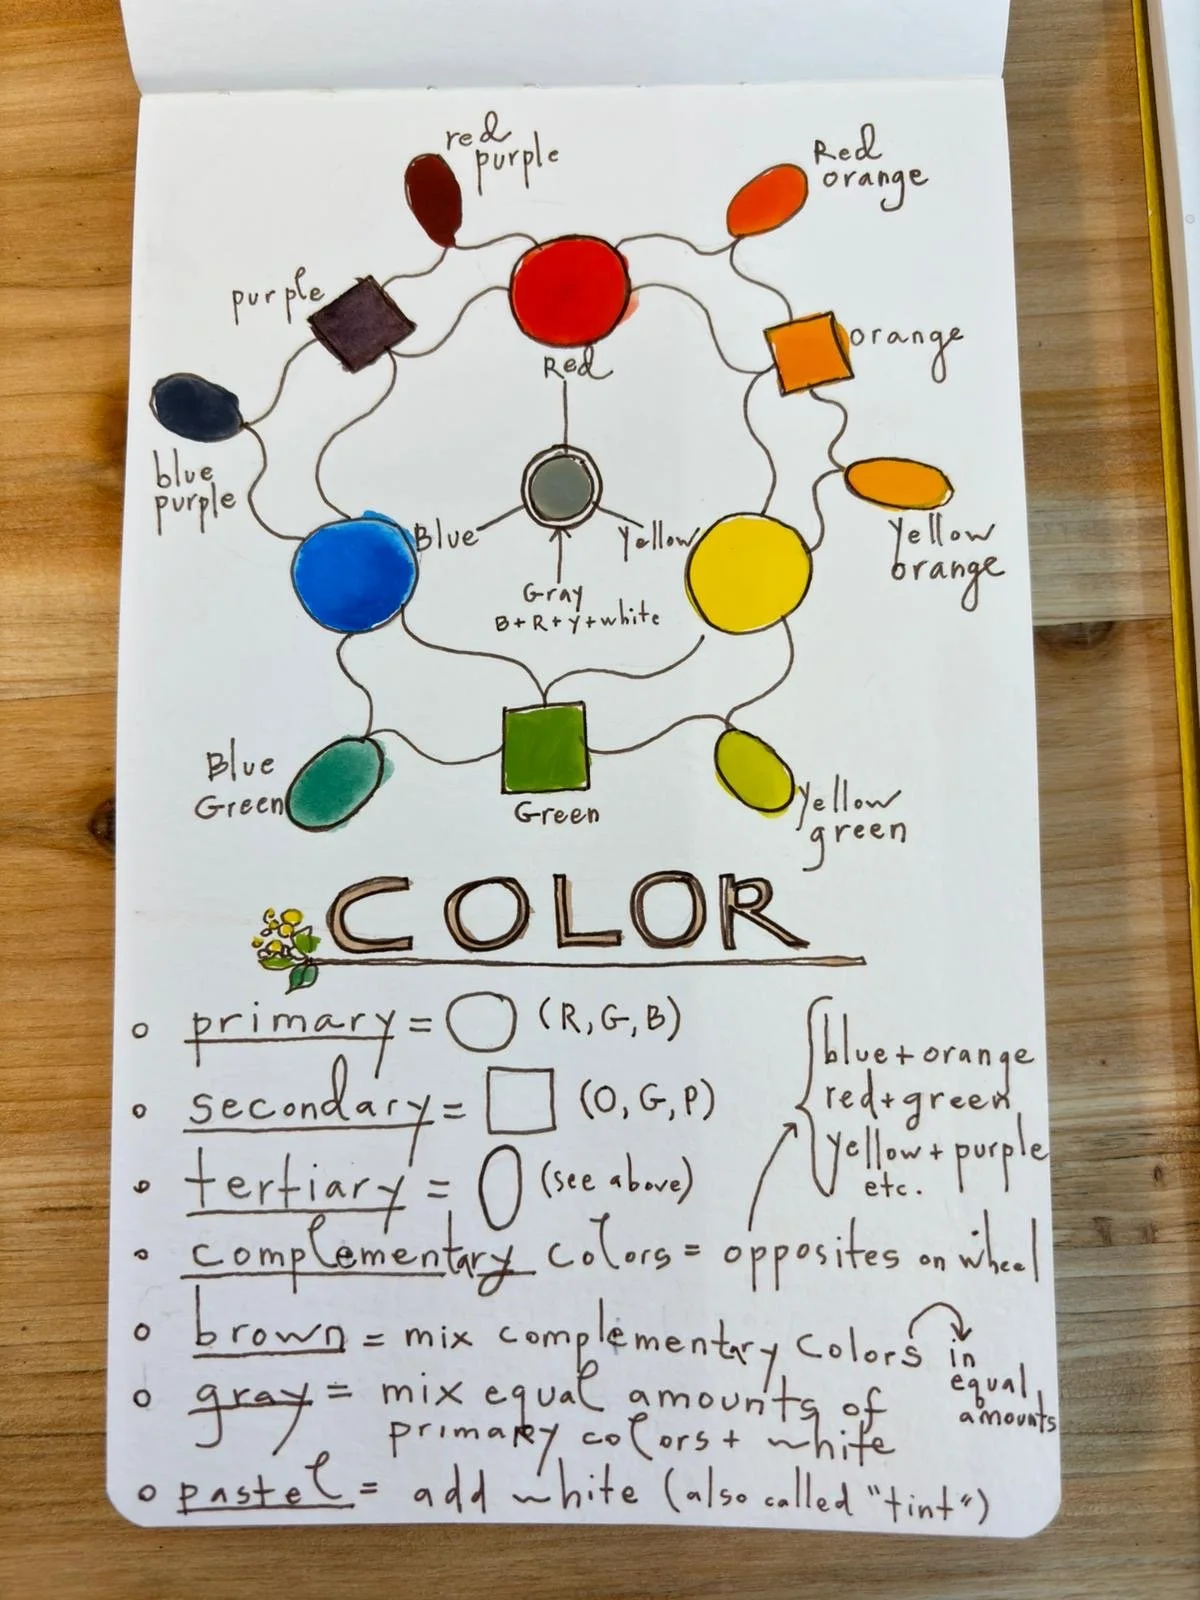 red
purple
Red
orange
purple
orange
Red
blue
purple
Blue
Yellow
Yellow
orange
Gray
B+R+Y+white
Blue
Green
Green
Yellow
green
COLOR
o primary = (R, G, B)
o secondary = (O, G, P)
o tertiary = (see above)
blue + orange
red + green
yellow + purple
etc.
o complementary colors = opposites on wheel
o brown = mix complementary colors in
equal
amounts
o gray = mix equal amounts of
primary colors + white
o pastel = add white (also called "tint")